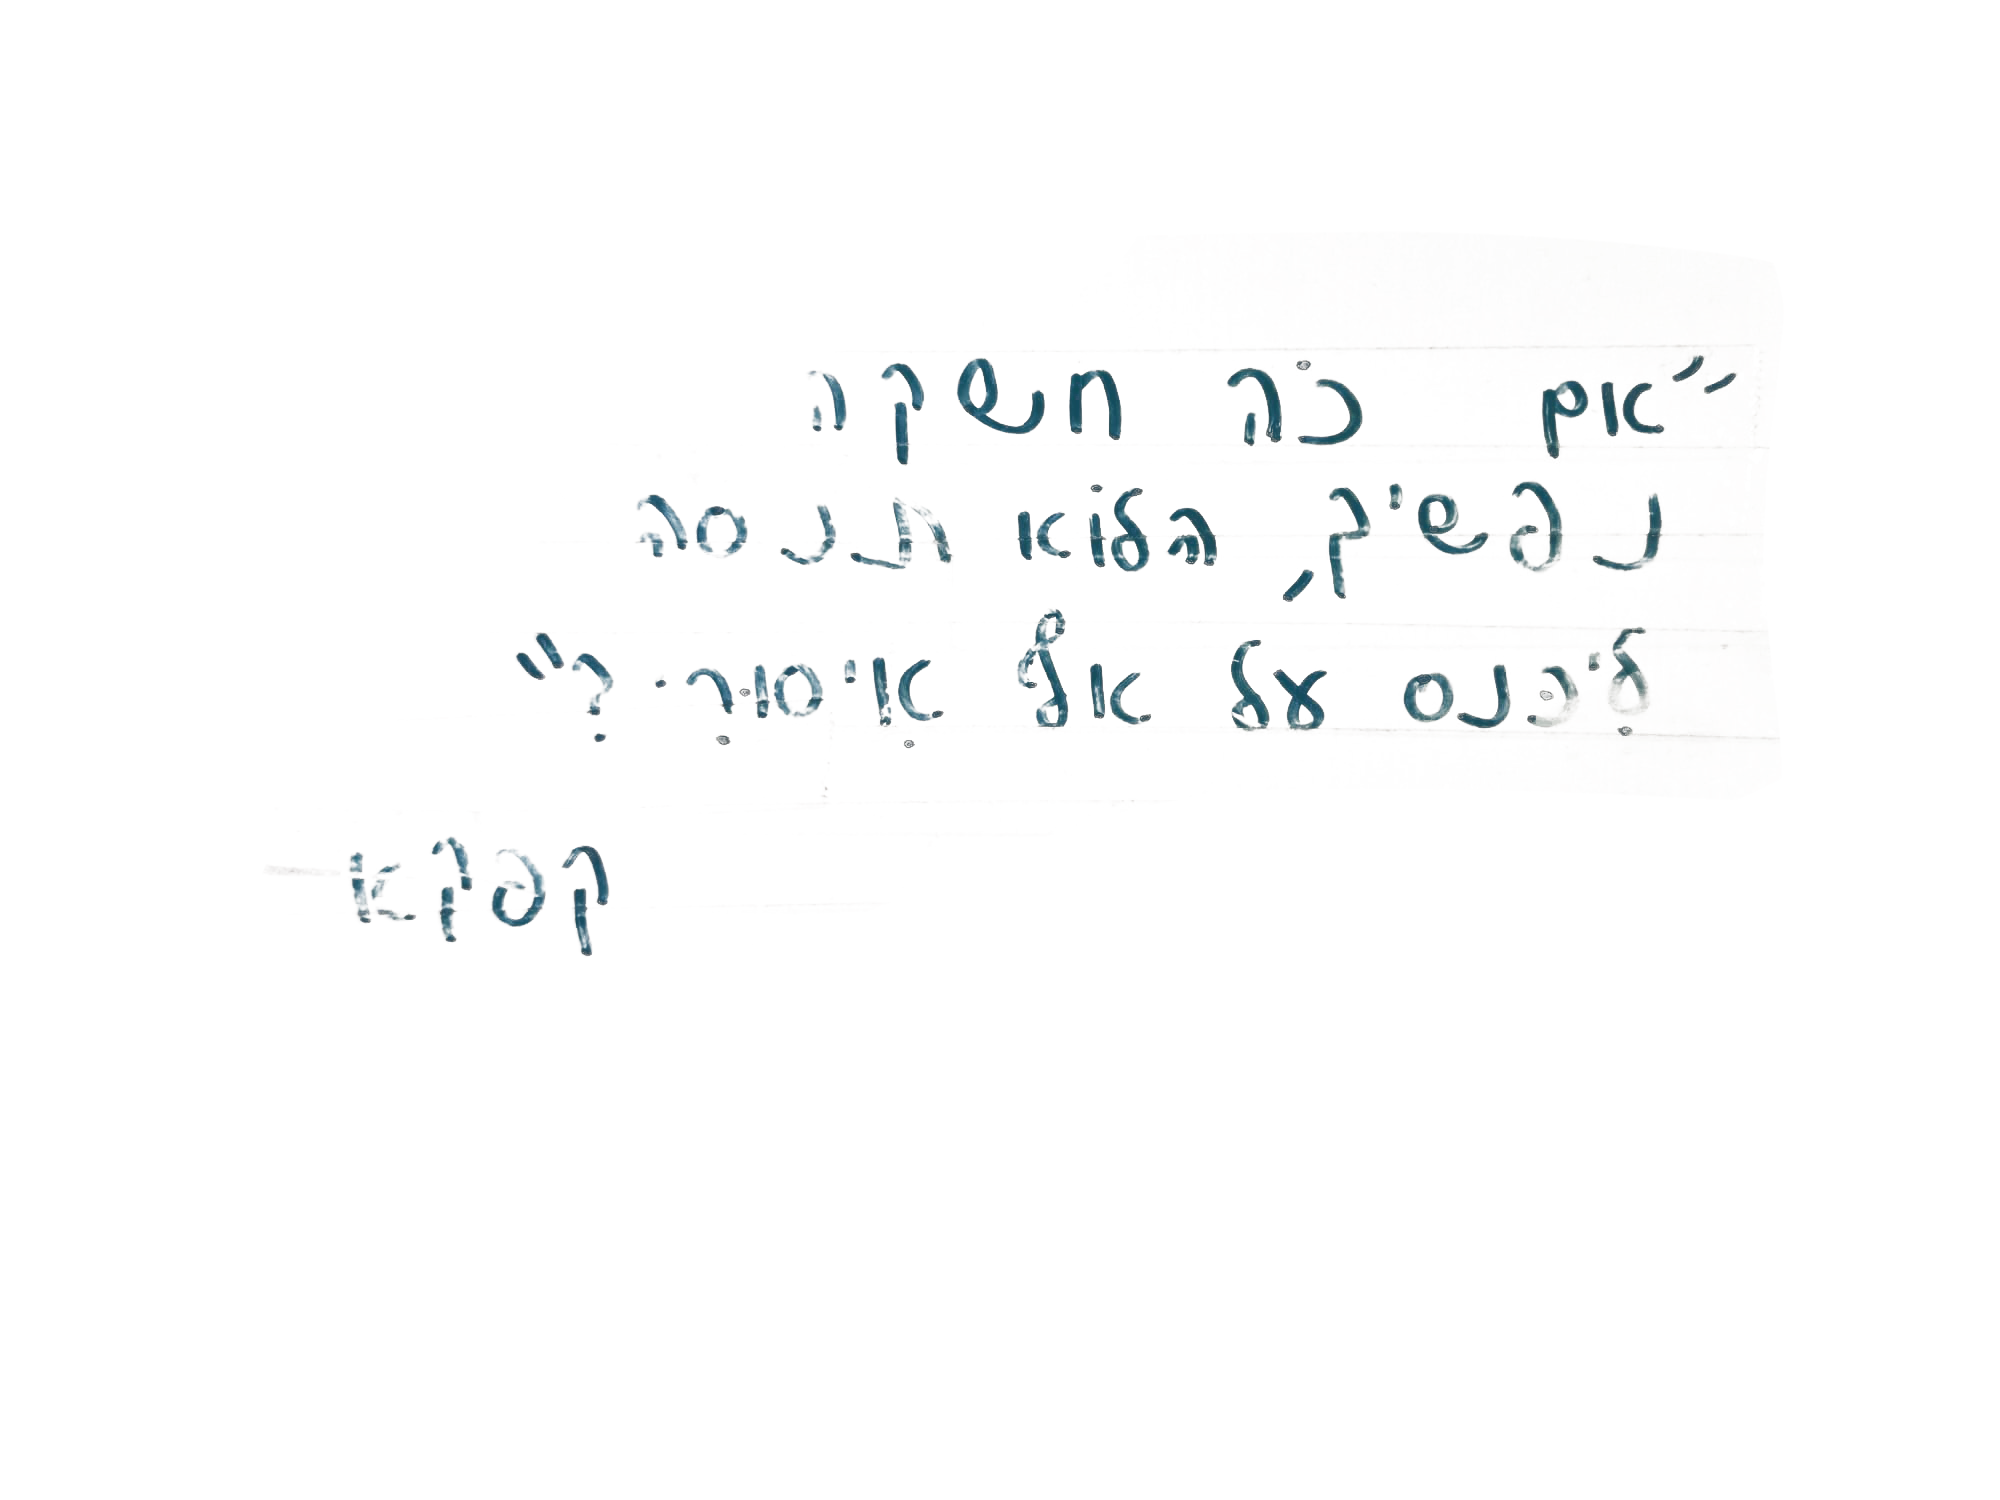 "אם כֹה חשקה
נפשיך, הלוֹא תנסה
לִיכּנס על אף אִיסוּרִי?"
קפקא